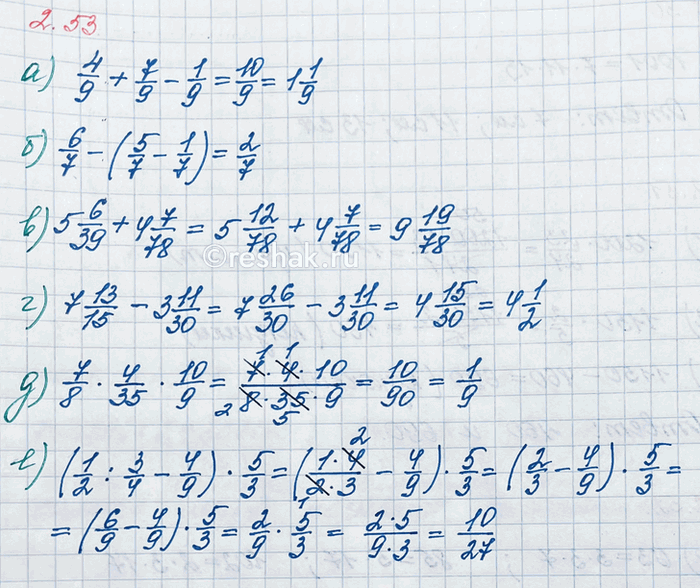 2.53
а) 4/9 + 7/9 − 1/9 = 10/9 = 1 1/9
б) 6/7 − (5/7 − 1/7) = 2/7
в) 5 6/39 + 4 7/78 = 5 12/78 + 4 7/78 = 9 19/78
©reshak.ru
г) 7 13/15 − 3 11/30 = 7 26/30 − 3 11/30 = 4 15/30 = 4 1/2
д) 7/8 · 4/35 · 10/9 = (7 · 4 · 10)/(8 · 35 · 9) = 10/90 = 1/9
е) (1/2 : 3/4 − 4/9) · 5/3 = ((1 · 4)/(2 · 3) − 4/9) · 5/3 = (2/3 − 4/9) · 5/3 =
= (6/9 − 4/9) · 5/3 = 2/9 · 5/3 = (2 · 5)/(9 · 3) = 10/27